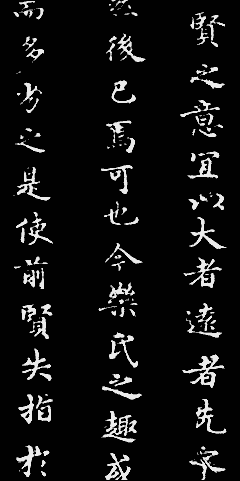 賢之意宜以大者遠者先之
後已焉可也今樂氏之趣或
而多劣之是使前賢失指於